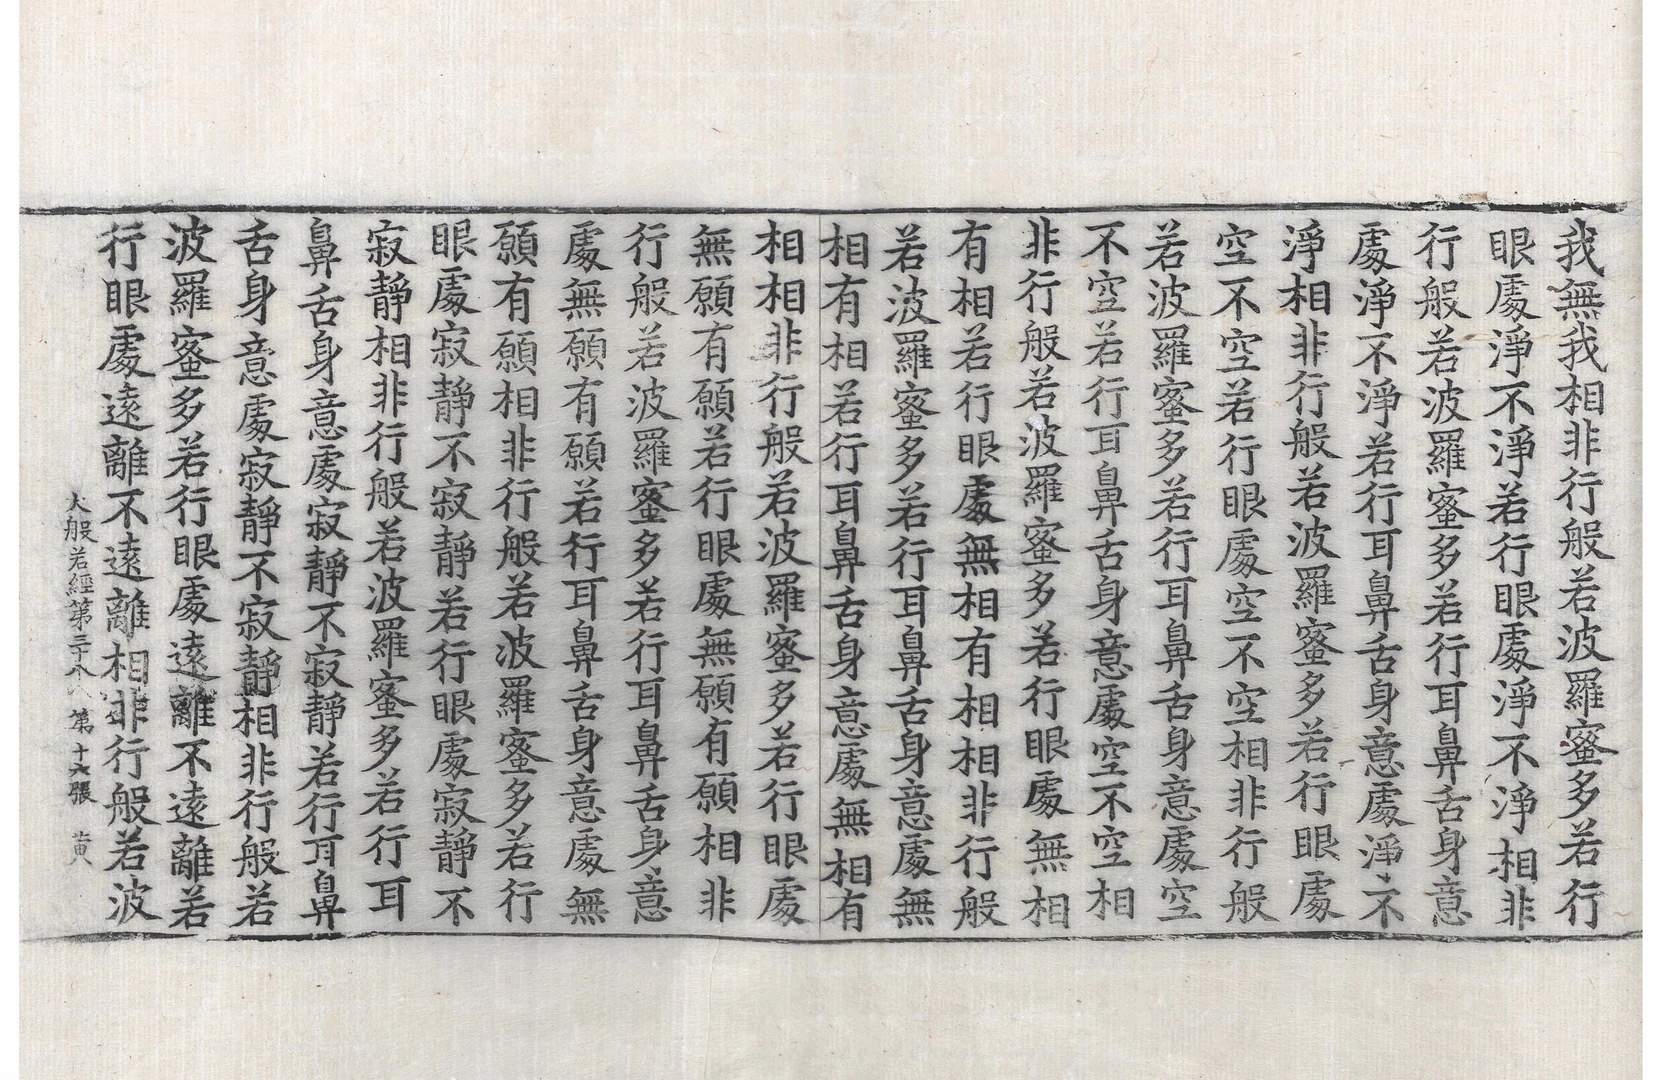 我無我相非行般若波羅蜜多若行
眼處淨不淨若行眼處淨不淨相非
行般若波羅蜜多若行耳鼻舌身意
處淨不淨若行耳鼻舌身意處淨不
淨相非行般若波羅蜜多若行眼處
空不空若行眼處空不空相非行般
若波羅蜜多若行耳鼻舌身意處空
不空若行耳鼻舌身意處空不空相
非行般若波羅蜜多若行眼處無相
有相若行眼處無相有相相非行般
若波羅蜜多若行耳鼻舌身意處無
相有相若行耳鼻舌身意處無相有
相相非行般若波羅蜜多若行眼處
無願有願若行眼處無願有願相非
行般若波羅蜜多若行耳鼻舌身意
處無願有願若行耳鼻舌身意處無
願有願相非行般若波羅蜜多若行
眼處寂靜不寂靜若行眼處寂靜不
寂靜相非行般若波羅蜜多若行耳
鼻舌身意處寂靜不寂靜若行耳鼻
舌身意處寂靜不寂靜相非行般若
波羅蜜多若行眼處遠離不遠離若
行眼處遠離不遠離相非行般若波
大般若經第三十八 第十六張 黄